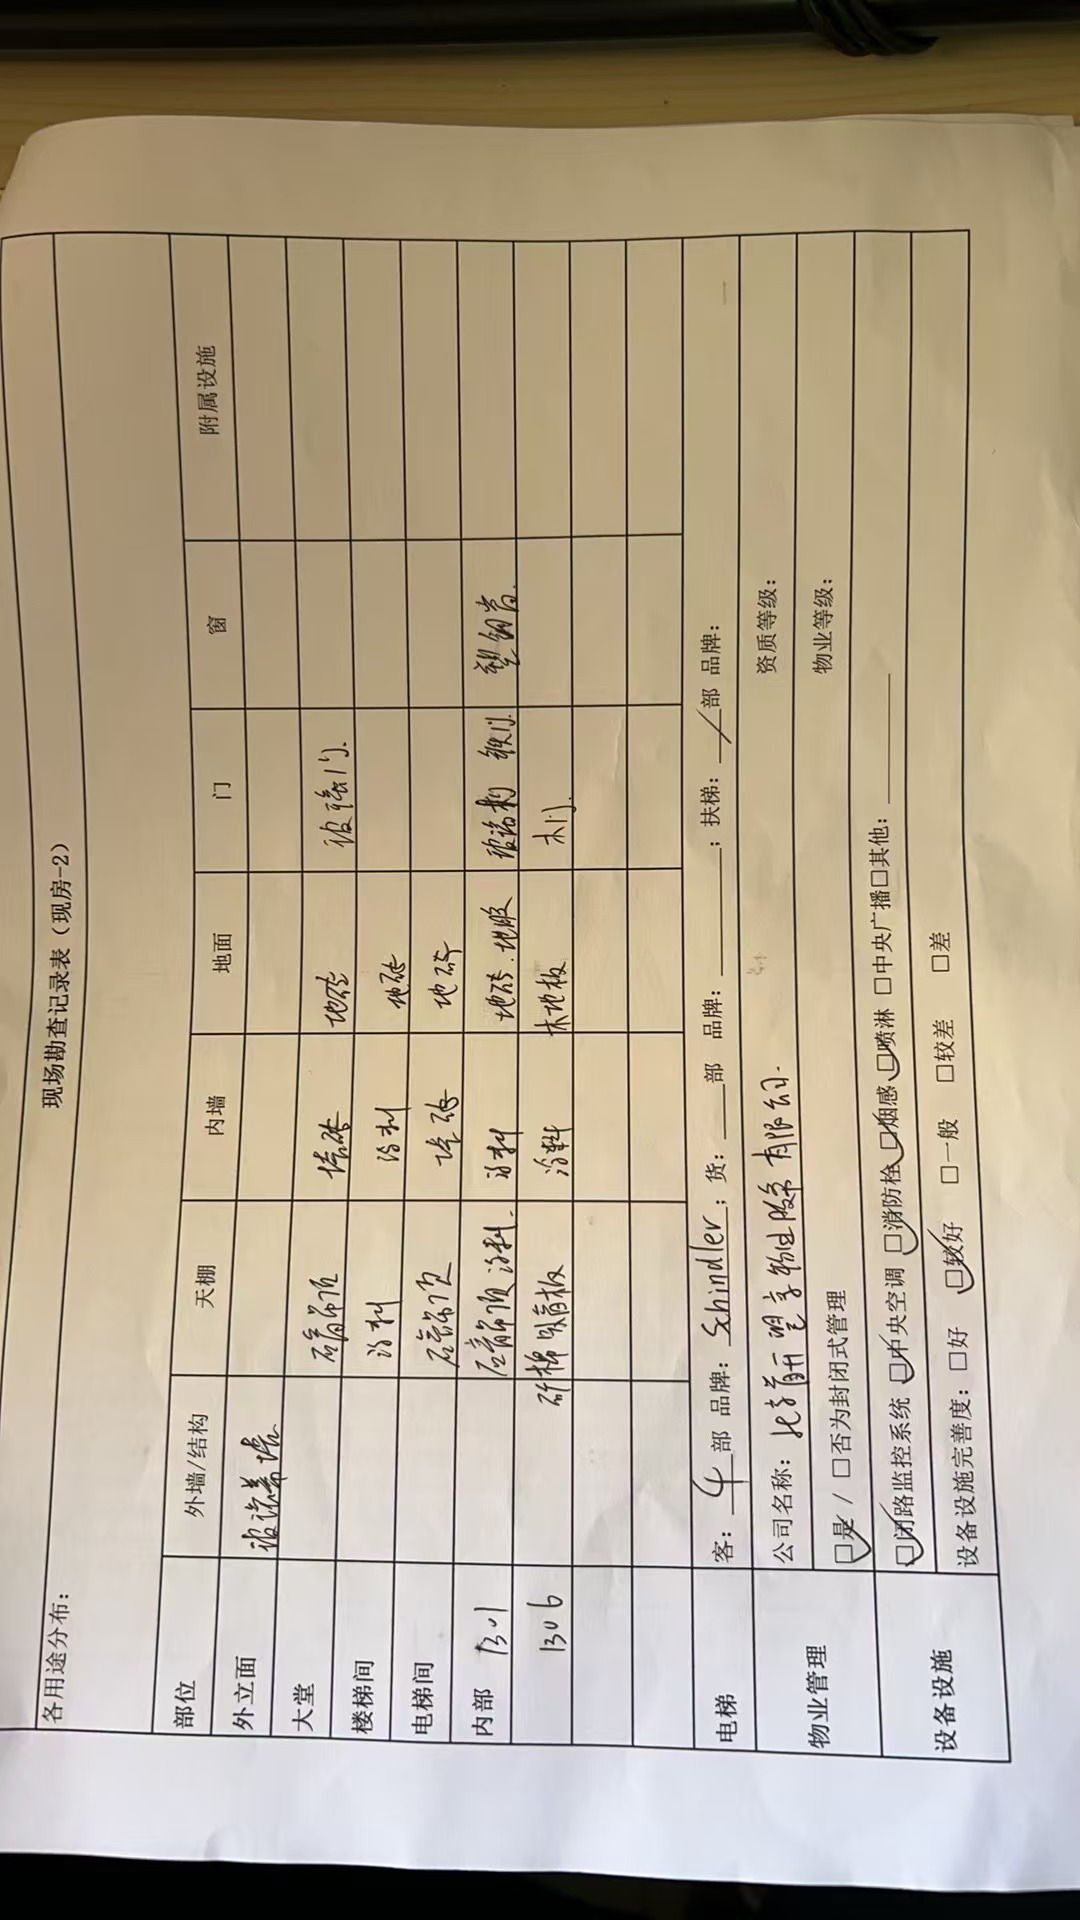 现场勘查记录表（现房-2）
各用途分布：
部位 外墙/结构 天棚 内墙 地面 门 窗 附属设施
外立面 玻璃幕墙
大堂 石膏吊顶 墙砖 地砖 玻璃门.
楼梯间 涂料 涂料 地砖
电梯间 石膏吊顶 墙砖 地砖
内部 1301 石膏吊顶 涂料. 涂料 地砖.地胶 玻璃门 铁门. 塑钢窗.
1306 矿棉吸音板 涂料 木地板 木门.
电梯 客：4部 品牌：Schindler；货：___部 品牌：______；扶梯：/部 品牌：
物业管理 公司名称：北京首开望京物业服务有限公司. 资质等级：
☑是 / □否为封闭式管理 物业等级：
设备设施 ☑闭路监控系统 ☑中央空调 ☑消防栓 ☑烟感 ☑喷淋 □中央广播 □其他：______
设备设施完善度：□好 ☑较好 □一般 □较差 □差